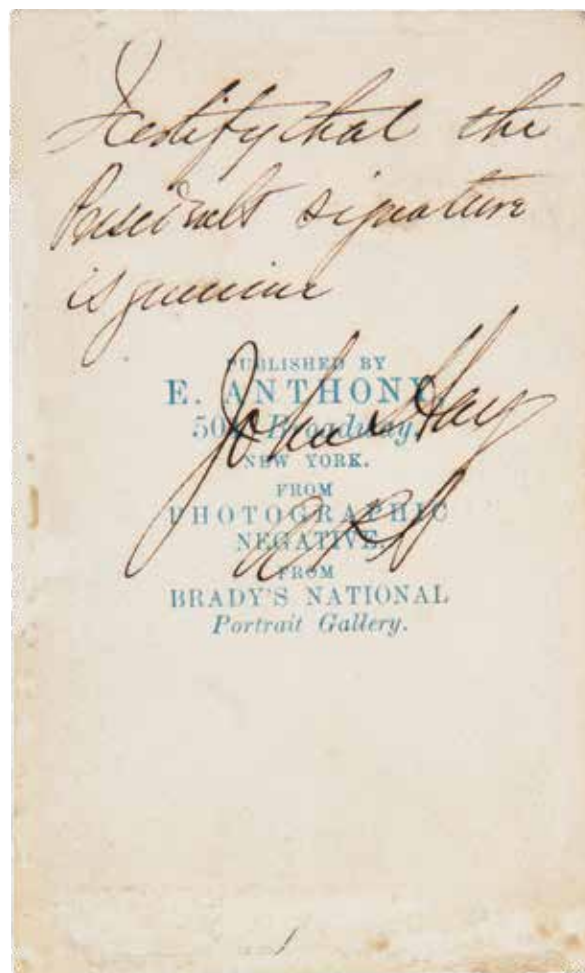 I certify that the
President's signature
is genuine
PUBLISHED BY
E. ANTHONY,
501 Broadway,
John Hay
NEW YORK.
FROM
PHOTOGRAPHIC
NEGATIVE,
FROM
BRADY'S NATIONAL
Portrait Gallery.